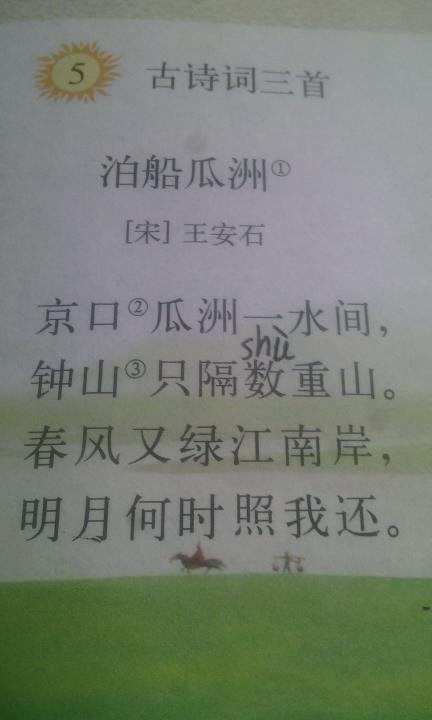 5 古诗词三首
泊船瓜洲①
[宋] 王安石
京口②瓜洲一水间，
shù
钟山③只隔数重山。
春风又绿江南岸，
明月何时照我还。